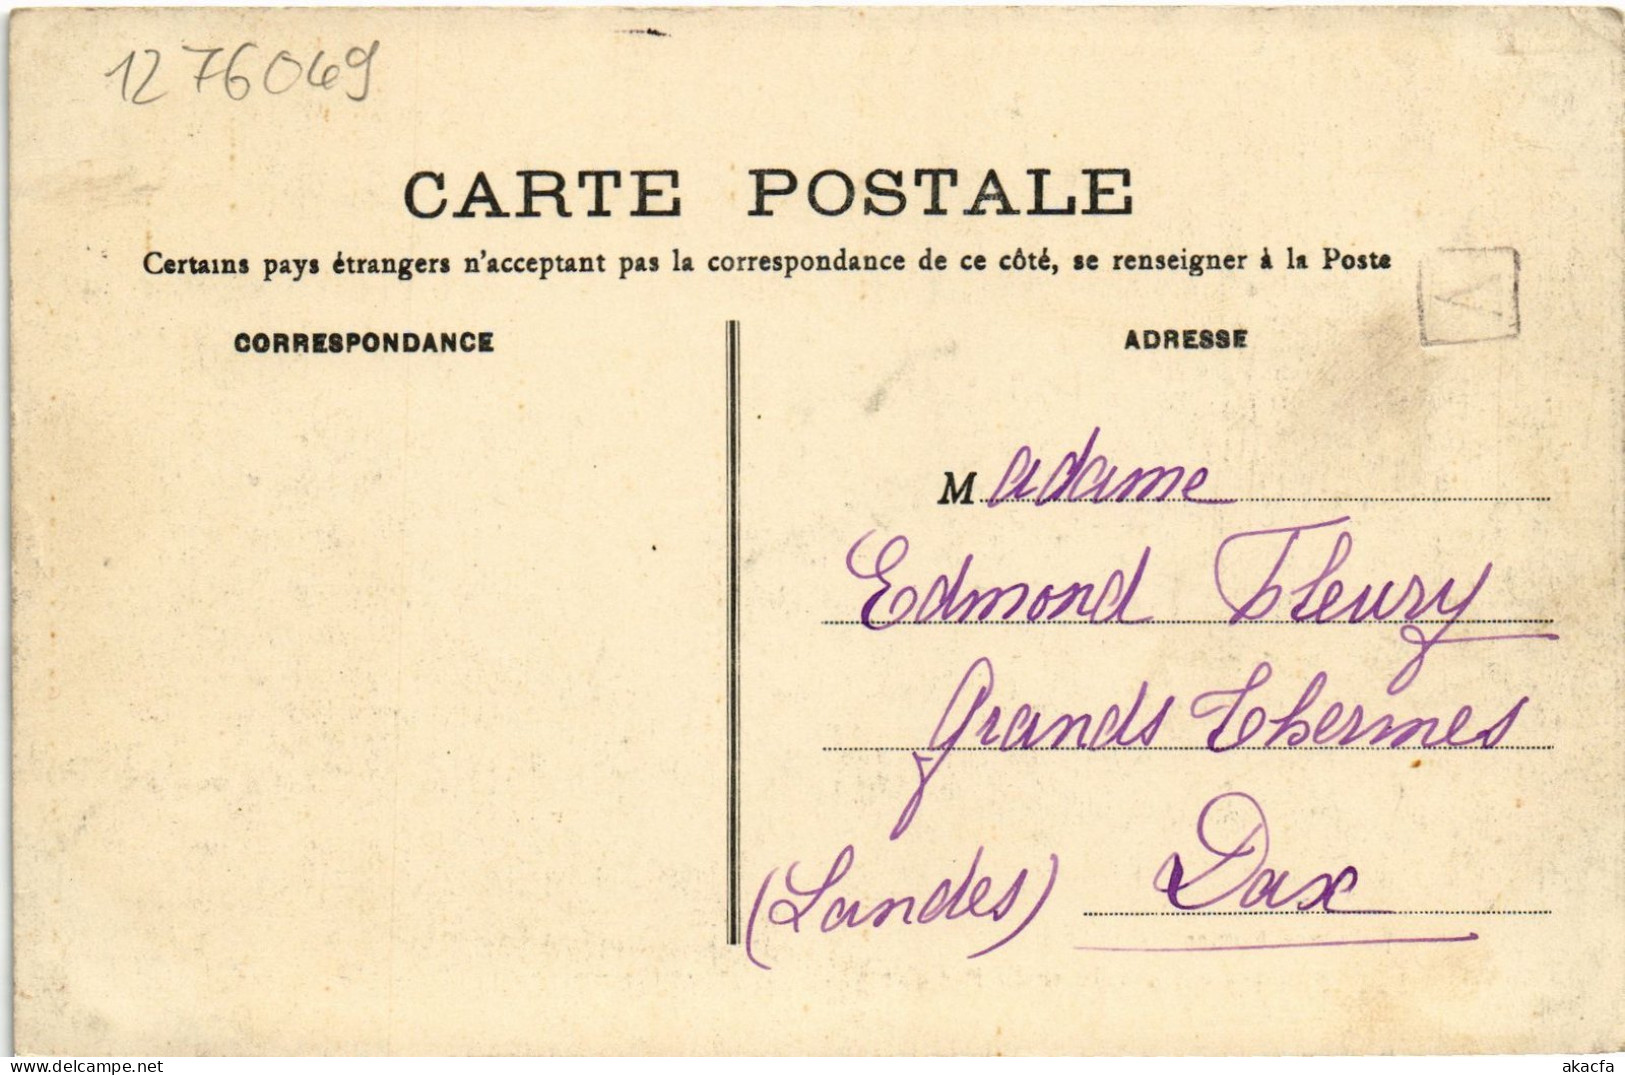 1276049
CARTE POSTALE
Certains pays étrangers n'acceptant pas la correspondance de ce côté, se renseigner à la Poste
CORRESPONDANCE
ADRESSE
A
Madame
Edmond Fleury
Grands Thermes
(Landes) Dax
www.delcampe.net
akacfa